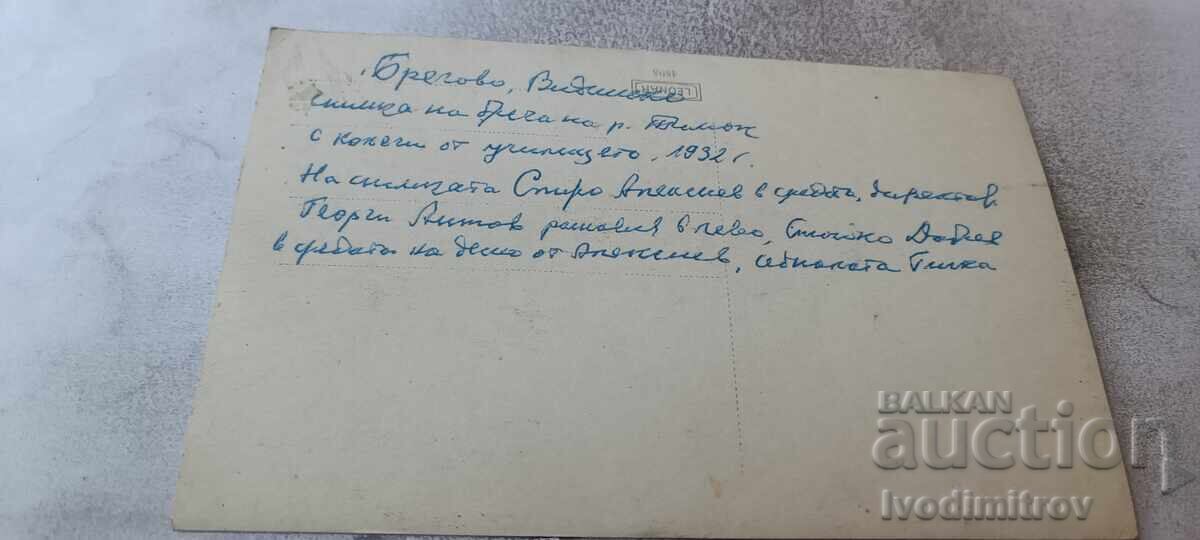 Брегово, Видинско
снимка на брега на р. Тимок
с колеги от училището, 1932 г.
На снимката Спиро Алексиев в средата, директор
Георги Антов в ляво, Стойко
в средата на дясно от Алексиев, Гинка
LEONAR
BALKAN
auction
Ivodimitrov